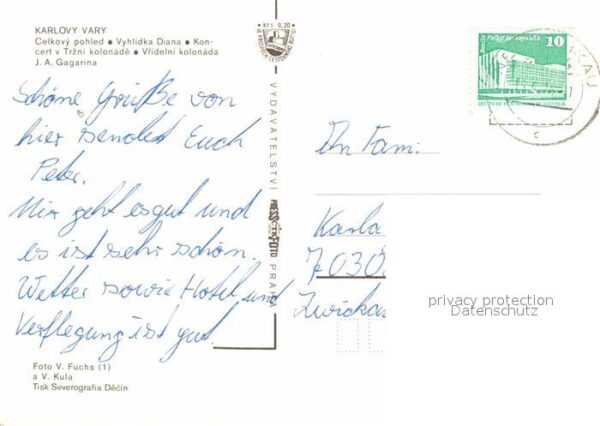 KARLOVY VARY
Celkový pohled • Vyhlídka Diana • Kon-
cert v Tržní kolonádě • Vřídelní kolonáda
J. A. Gagarina
Kčs 0,20
Schöne Grüße von
hier sendet Euch
Peter.
Mir geht es gut und
es ist sehr schön.
Wetter sowie Hotel und
Verflegung ist gut
Foto V. Fuchs (1)
a V. Kula
Tisk Severografia Děčín
VYDAVATELSTVÍ PRESSFOTO PRAHA
Berlin Palast der Republik
10
c
An Fam.
Karla
7030
Zwickau
privacy protection
Datenschutz